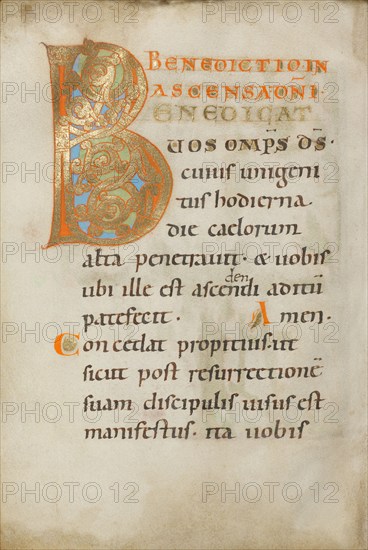 BENEDICTIO IN
ASCENSA DNI.
BENEDICAT
UOS OMPS DS.
cuius unigeni
tus hodierna
die caelorum
alta penetrauit. & uobis
den
ubi ille est ascendi aditū
patefecit. Amen.
Concedat propitius. ut
sicut post resurrectionē
suam discipulis uisus est
manifestus. ita uobis
PHOTO 12